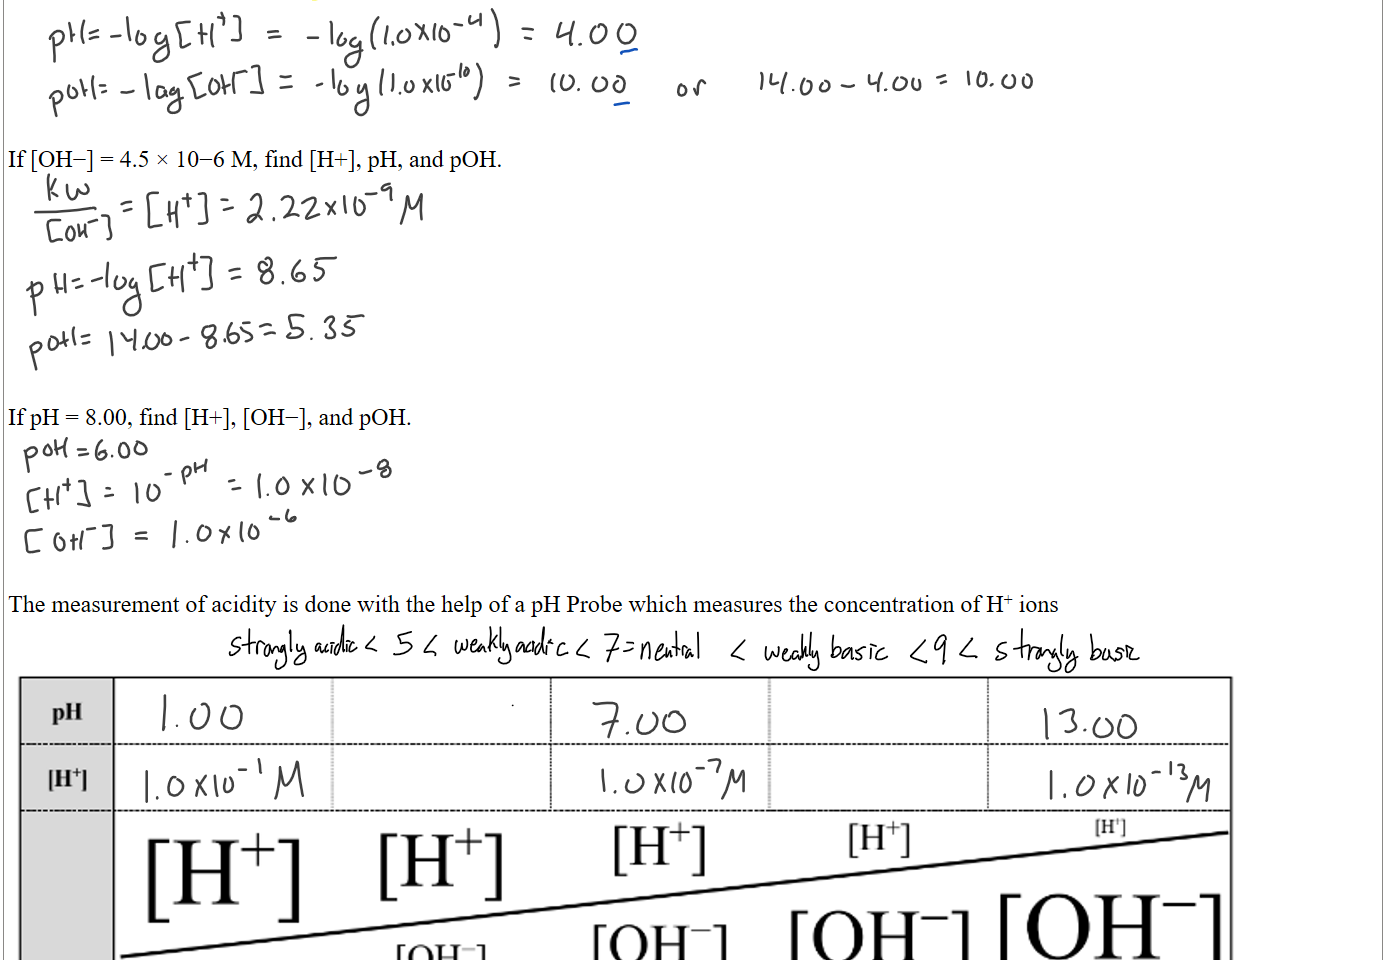 pH= -log[H⁺] = -log(1.0x10⁻⁴) = 4.00
pOH= -log[OH⁻] = -log(1.0x10⁻¹⁰) = 10.00 or 14.00 - 4.00 = 10.00
If [OH−] = 4.5 × 10−6 M, find [H+], pH, and pOH.
kw
/[OH⁻] = [H⁺] = 2.22x10⁻⁹ M
pH= -log[H⁺] = 8.65
pOH= 14.00 - 8.65 = 5.35
If pH = 8.00, find [H+], [OH−], and pOH.
pOH = 6.00
[H⁺] = 10⁻ᵖᴴ = 1.0 x 10⁻⁸
[OH⁻] = 1.0 x 10⁻⁶
The measurement of acidity is done with the help of a pH Probe which measures the concentration of H⁺ ions
strongly acidic < 5 < weakly acidic < 7 = neutral < weakly basic < 9 < strongly basic
pH 1.00 7.00 13.00
[H⁺] 1.0 x 10⁻¹ M 1.0 x 10⁻⁷ M 1.0 x 10⁻¹³ M
[H⁺] [H⁺] [H⁺] [H⁺] [H⁺]
[OH⁻] [OH⁻] [OH⁻] [OH⁻]